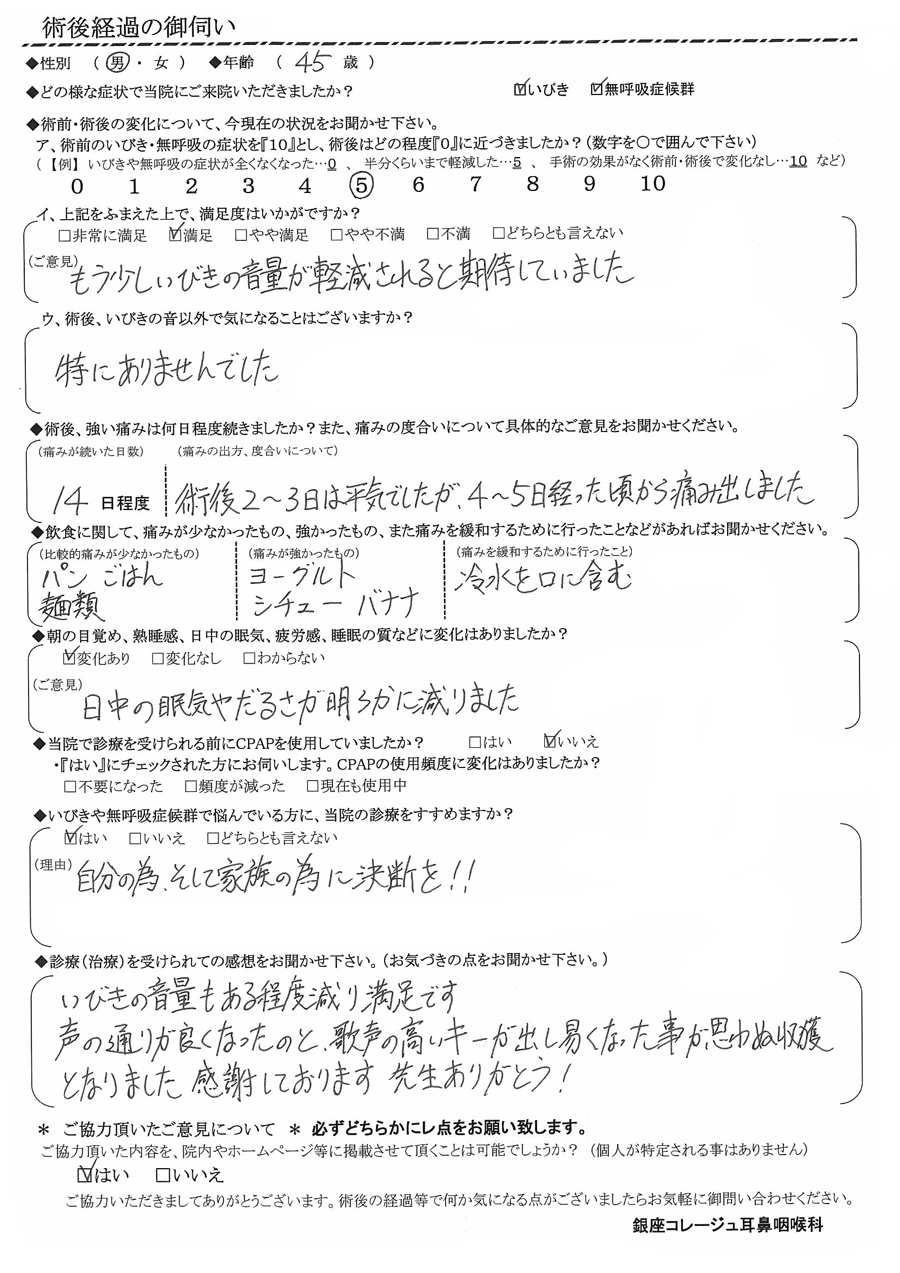 術後経過の御伺い
◆性別 （ 男 ・ 女 ） ◆年齢 （ 45 歳 ）
◆どの様な症状で当院にご来院いただきましたか？ ☑いびき ☑無呼吸症候群
◆術前・術後の変化について、今現在の状況をお聞かせ下さい。
ア、術前のいびき・無呼吸の症状を『10』とし、術後はどの程度『0』に近づきましたか？（数字を○で囲んで下さい）
（ 【例】 いびきや無呼吸の症状が全くなくなった…0 、 半分くらいまで軽減した…5 、 手術の効果がなく術前・術後で変化なし…10 など）
0 1 2 3 4 ⑤ 6 7 8 9 10
イ、上記をふまえた上で、満足度はいかがですか？
□非常に満足 ☑満足 □やや満足 □やや不満 □不満 □どちらとも言えない
（ご意見） もう少しいびきの音量が軽減されると期待していました
ウ、術後、いびきの音以外で気になることはございますか？
特にありませんでした
◆術後、強い痛みは何日程度続きましたか？また、痛みの度合いについて具体的なご意見をお聞かせください。
（痛みが続いた日数） （痛みの出方、度合いについて）
14 日程度 術後2〜3日は平気でしたが、4〜5日経った頃から痛み出しました
◆飲食に関して、痛みが少なかったもの、強かったもの、また痛みを緩和するために行ったことなどがあればお聞かせください。
（比較的痛みが少なかったもの） （痛みが強かったもの） （痛みを緩和するために行ったこと）
パン ごはん ヨーグルト 冷水を口に含む
麺類 シチュー バナナ
◆朝の目覚め、熟睡感、日中の眠気、疲労感、睡眠の質などに変化はありましたか？
☑変化あり □変化なし □わからない
（ご意見） 日中の眠気やだるさが明らかに減りました
◆当院で診療を受けられる前にCPAPを使用していましたか？ □はい ☑いいえ
・『はい』にチェックされた方にお伺いします。CPAPの使用頻度に変化はありましたか？
□不要になった □頻度が減った □現在も使用中
◆いびきや無呼吸症候群で悩んでいる方に、当院の診療をすすめますか？
☑はい □いいえ □どちらとも言えない
（理由） 自分の為、そして家族の為に決断を！！
◆診療（治療）を受けられての感想をお聞かせ下さい。（お気づきの点をお聞かせ下さい。）
いびきの音量もある程度減り満足です
声の通りが良くなったのと、歌声の高いキーが出し易くなった事が、思わぬ収獲
となりました 感謝しております 先生ありがとう！
＊ ご協力頂いたご意見について ＊ 必ずどちらかにレ点をお願い致します。
ご協力頂いた内容を、院内やホームページ等に掲載させて頂くことは可能でしょうか？ （個人が特定される事はありません）
☑はい □いいえ
ご協力いただきましてありがとうございます。術後の経過等で何か気になる点がございましたらお気軽に御問い合わせください。
銀座コレージュ耳鼻咽喉科